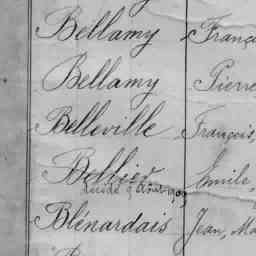 Bellamy Franço
Bellamy Pierre
Belleville François,
Bellier Emile,
décédé 9 Août 1909
Blénardais Jean, Ma